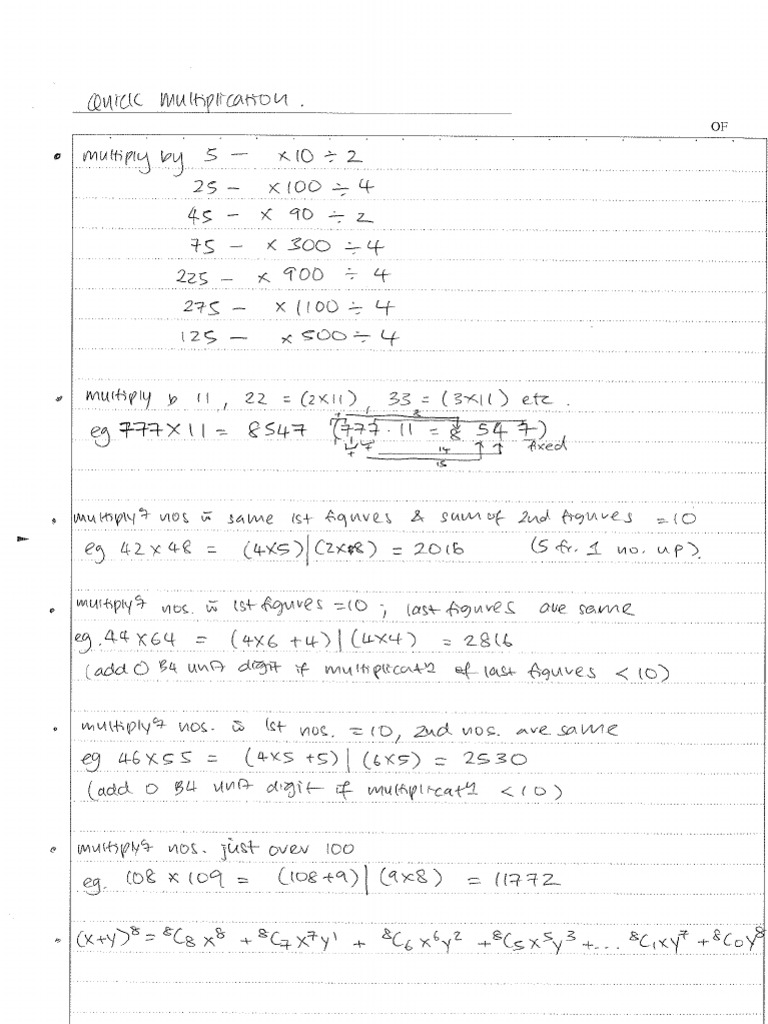 Quick Multiplication.
OF
• multiply by 5 — ×10 ÷ 2
25 — ×100 ÷ 4
45 — × 90 ÷ 2
75 — × 300 ÷ 4
225 — × 900 ÷ 4
275 — × 1100 ÷ 4
125 — × 500 ÷ 4
• multiply b 11, 22 = (2×11), 33 = (3×11) etc.
eg 777×11 = 8547 (777 · 11 = 8 54 7)
fixed
14
15
• multiplyg nos w̄ same 1st figures & sum of 2nd figures = 10
eg 42×48 = (4×5)|(2×8) = 2016 (5 fr. 1 no. up).
• multiplyg nos. w̄ 1st figures = 10 ; last figures are same
eg. 44×64 = (4×6 +4)|(4×4) = 2816
(add 0 B4 unit digit if multiplicatn of last figures < 10)
• multiplyg nos. w̄ 1st nos. = 10, 2nd nos. are same
eg 46×55 = (4×5 +5)|(6×5) = 2530
(add 0 B4 unit digit if multiplicatn < 10)
• multiplyg nos. just over 100
eg. 108 × 109 = (108+9)|(9×8) = 11772
• (x+y)⁸ = ⁸C₈ x⁸ + ⁸C₇ x⁷y¹ + ⁸C₆ x⁶y² + ⁸C₅ x⁵y³ + ... ⁸C₁xy⁷ + ⁸C₀y⁸